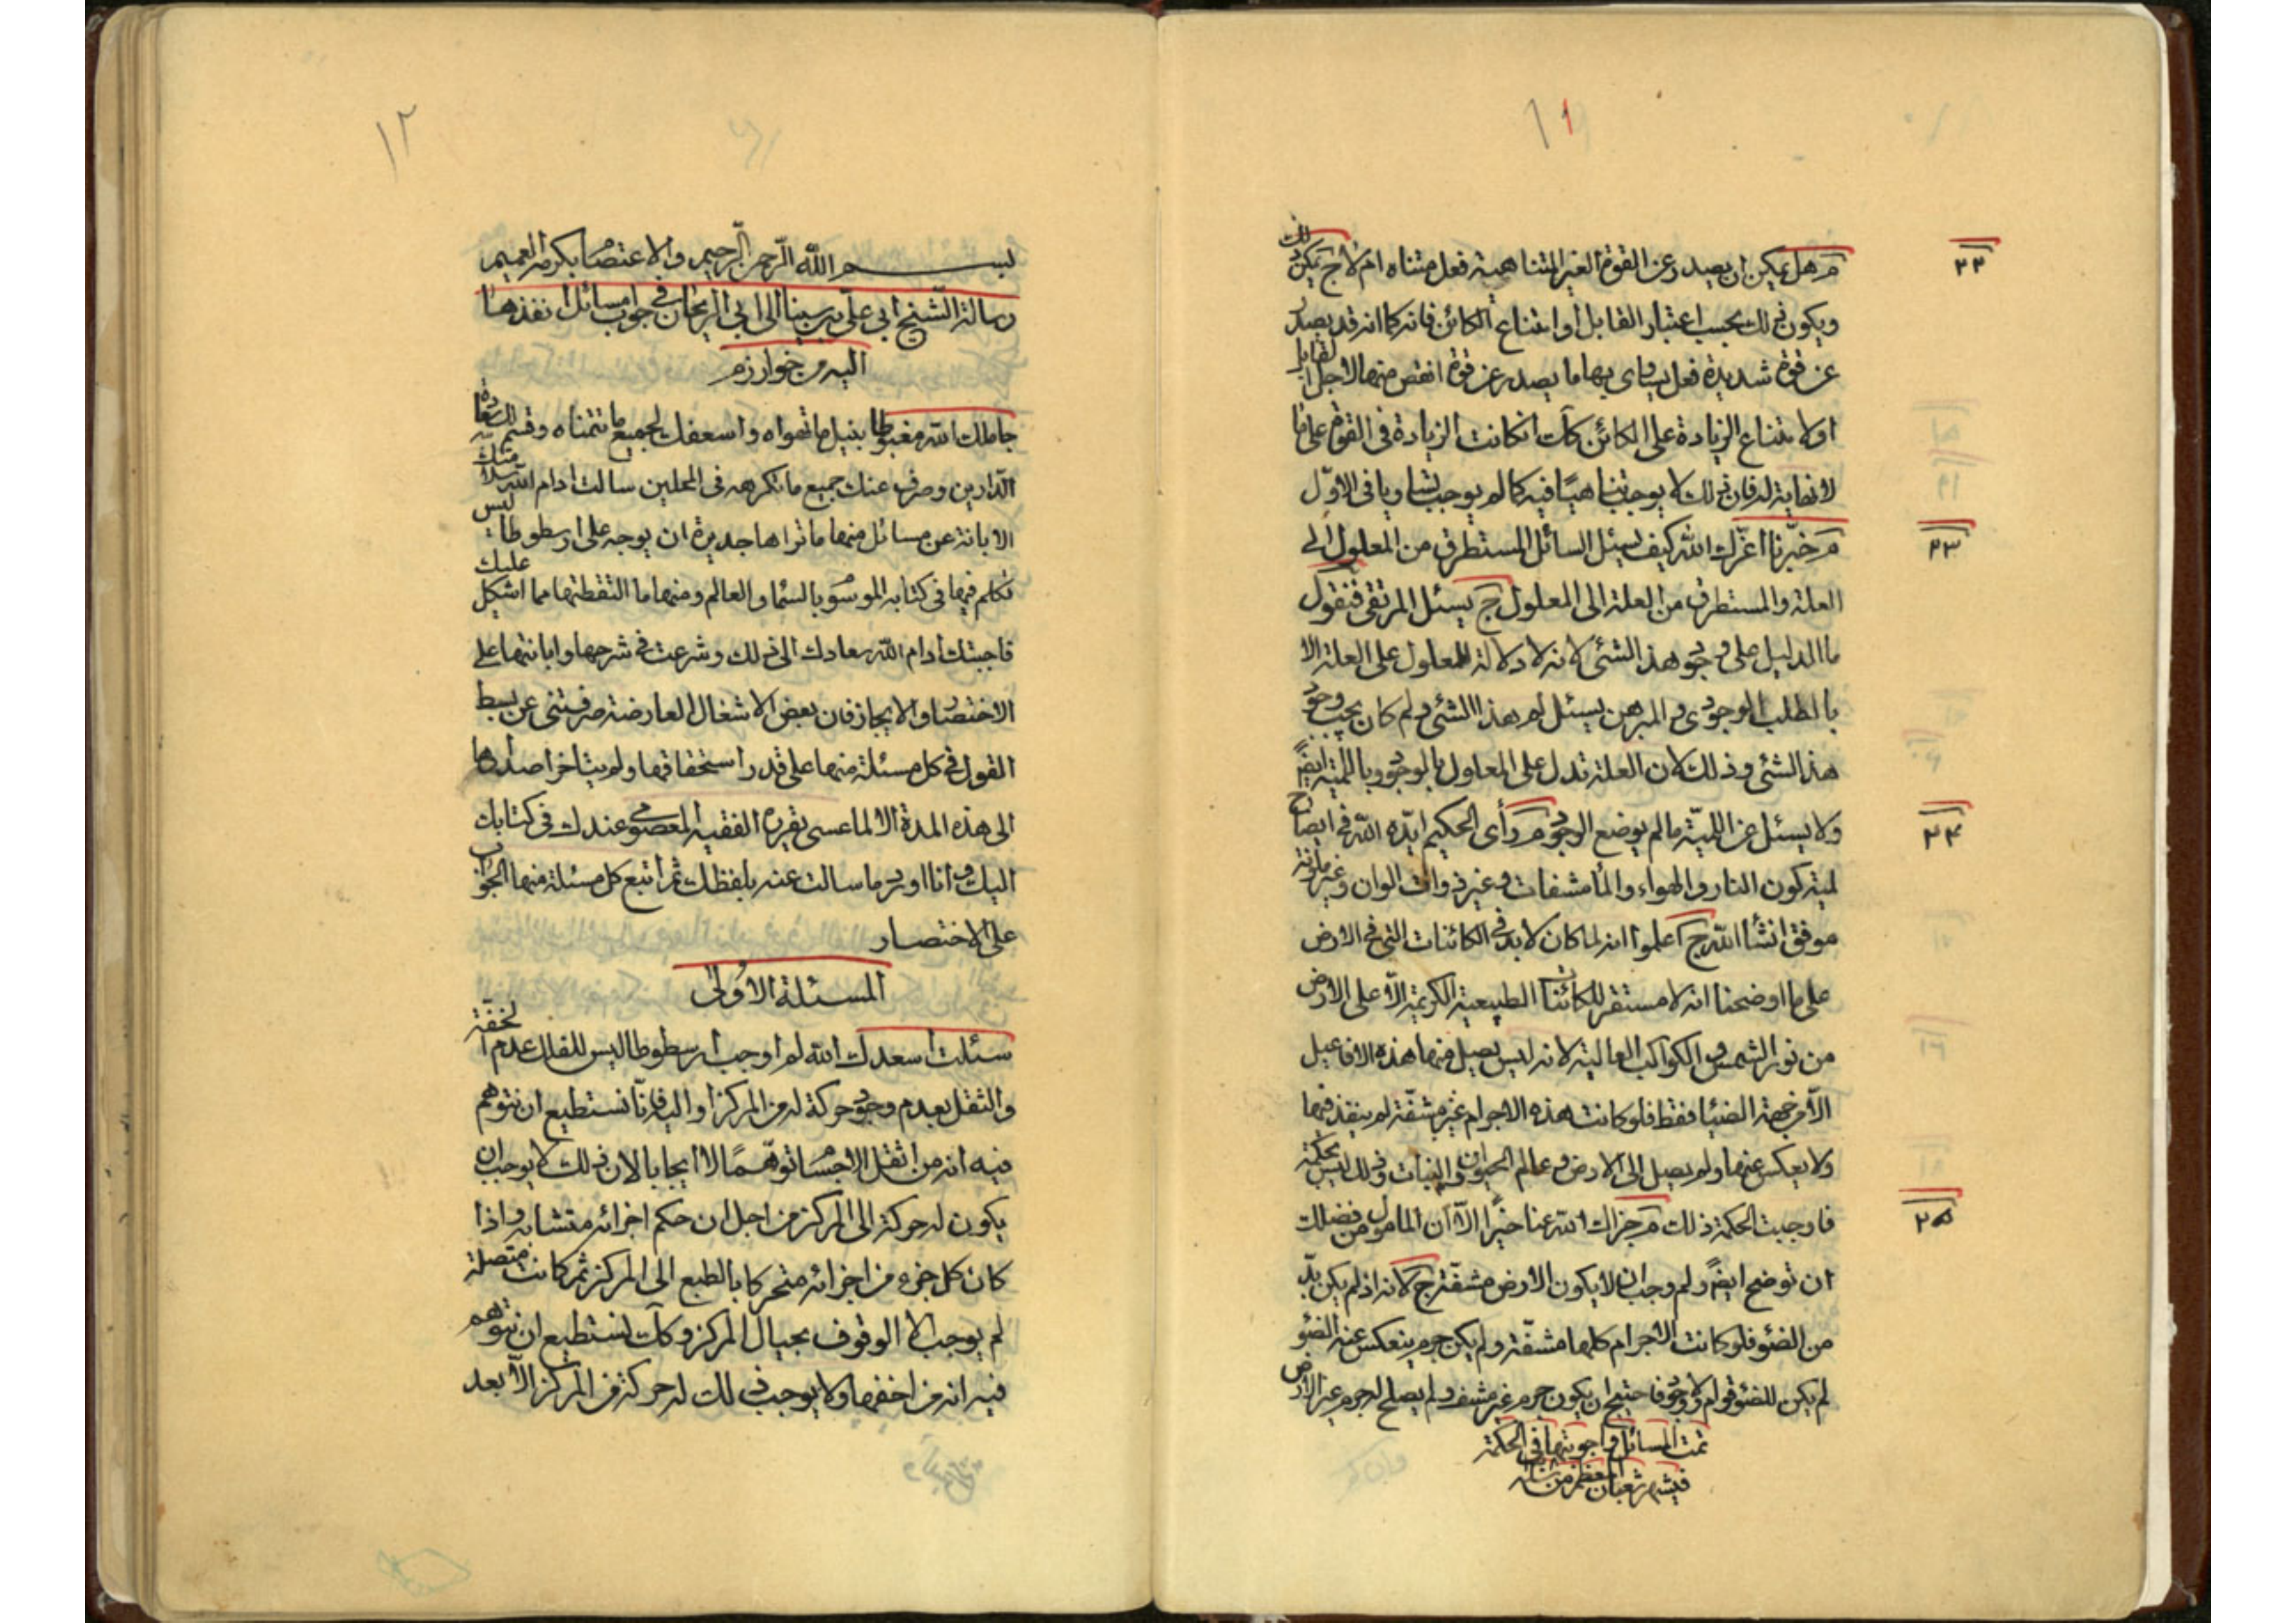 ١١
٢٢
م هل يمكن ان يصدر عن القوة الغير المتناهية فعل متناه ام لا ج يمكن ذلك
ويكون ذلك بحسب اعتبار القابل او امتناع الكائن فانه كما انه قد يصدر
عن قوة شديدة فعل يساوى بها ما يصدر عن قوة انقص منها لاجل القابل
او لامتناع الزيادة على الكائن كك اذ كانت الزيادة فى القوة على ما
لا نهاية له فان ذلك لا يوجب تناهيا فيه كما لم يوجب تساويا فى الاول
٢٣
م خبرنا اعزك الله كيف يسئل السائل المستطرق من المعلول الى
العلة والمستطرق من العلة الى المعلول ج يسئل المرتقى فنقول
ما الدليل على وجود هذا الشئ لانه لا دلالة للمعلول على العلة الا
بالمطلب الوجودى و المبرهن يسئل لم هذا الشئ ولم كان يجب وجود
هذا الشئ وذلك لان العلة تدل على المعلول بالوجود وباللمية ايضا
٢٤
ولا يسئل عن اللمية ما لم يوضع الوجود م رأى الحكيم ايده الله فى ايضاح
لمية كون النار والهواء والماء مشفات وغير ذوات الوان وغير ملونة
موفق انشاء الله ج اعلموا انه لما كان لابد فى الكائنات التى فى الارض
على ما اوضحنا انه لا مستقر للكائنات الطبيعية الكريمة الا على الارض
من نور الشمس والكواكب العالية لانه ليس يصل منها هذه الافاعيل
الا من جهة الضياء فقط فلو كانت هذه الاجرام غير مشفة لم ينفذ فيها
ولا يعكس عنها ولم يصل الى الارض وعالم الحيوان والنبات وذلك ليس بحكمة
٢٥
فاوجبت الحكمة ذلك م جزاك الله عنا خيرا الا ان المامول من فضلك
ان توضح ايضا ولم وجب ان لا يكون الارض مشفة ج لانه اذ لم يكن بد
من الضوء فلو كانت الاجرام كلها مشفة ولم يكن جرم ينعكس عنه الضوء
لم يكن للضوء قوام ولا وجود فاحتيج ان يكون جرم غير مشف ولم يصلح له جرم غير الارض
تمت المسائل واجوبتها فى الحكمة
فى شهر شعبان المعظم من
١٢
بسم الله الرحمن الرحيم والاعتصام بكرمه العميم
رسالة الشيخ ابى على بن سينا الى ابى الريحان فى جواب مسائل انفذها
اليه من خوارزم
جاملك الله مغبوطا بنيل ما تهواه واسعفك بجميع ما تتمناه وقسم لك سعادة
الدارين وصرف عنك جميع ما تكرهه فى المحلين سالت ادام الله سلامتك
الابانة عن مسائل منها ما تراها جديرة ان يوجه على ارسطوطاليس
تكلم فيها فى كتابه الموسوم بالسماء والعالم ومنها ما التقطتها مما اشكل عليك
فاجبتك ادام الله سعادتك الى ذلك وشرعت فى شرحها وابانتها على
الاختصار والايجاز فان بعض الاشغال العارضة صرفتنى عن بسط
القول فى كل مسئلة منها على قدر استحقاقها ولم يتاخر اصدارها
الى هذه المدة الا لما عسى يقرره الفقيه المعصومى عندك فى كتابك
اليك و انا اورد ما سالت عنه بلفظك ثم اتبع كل مسئلة منها الجواب
على الاختصار
المسئلة الاولى
سئلت اسعدك الله لم اوجب ارسطوطاليس للفلك عدم الخفة
والثقل بعدم وجود حركة له من المركز او اليه فانا نستطيع ان نتوهم
فيه انه من اثقل الاجسام توهما لا ايجابا لان ذلك لا يوجب ان
يكون له حركة الى المركز من اجل ان حكم اجزائه متشابه واذا
كان كل جزء من اجزائه متحركا بالطبع الى المركز ثم كانت متصلة
لم يوجب الا الوقوف بحيال المركز وكك نستطيع ان نتوهم
فيه انه من اخفها ولا يوجب ذلك له حركة من المركز الا بعد